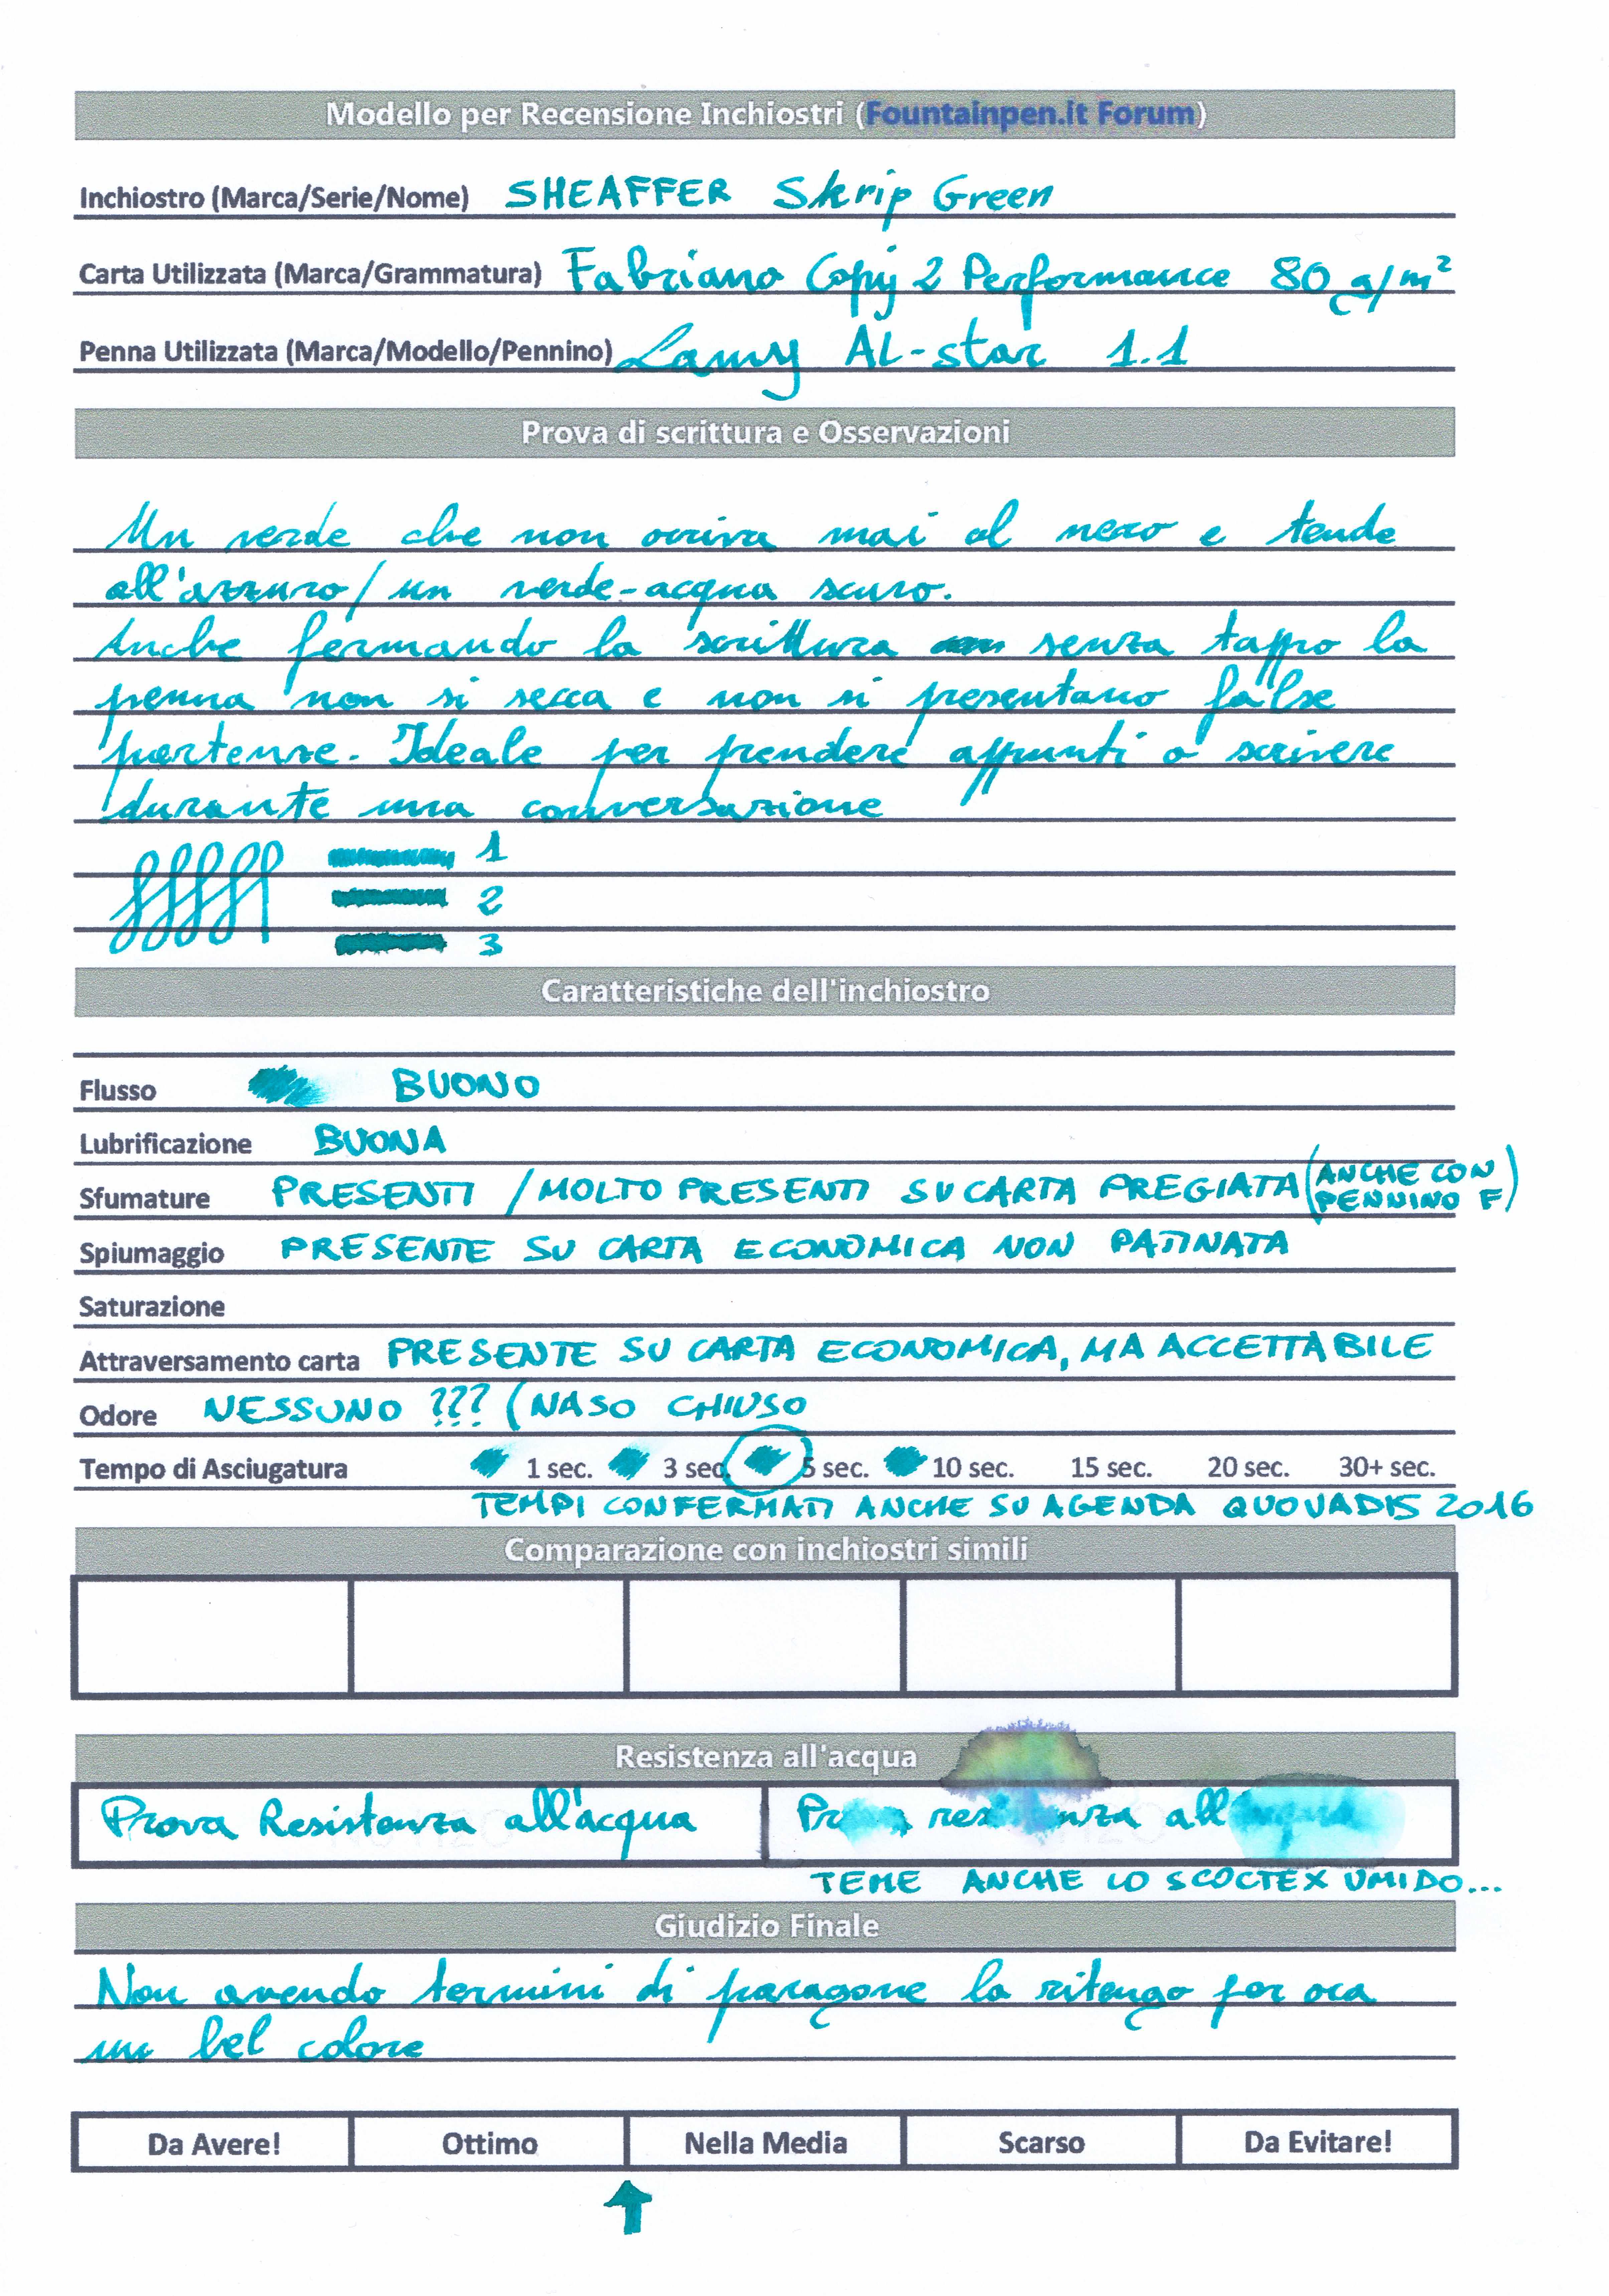 Modello per Recensione Inchiostri (Fountainpen.it Forum)
Inchiostro (Marca/Serie/Nome) SHEAFFER Skrip Green
Carta Utilizzata (Marca/Grammatura) Fabriano Copy 2 Performance 80 g/m²
Penna Utilizzata (Marca/Modello/Pennino) Lamy AL-star 1.1
Prova di scrittura e Osservazioni
Un verde che non arriva mai al nero e tende
all'azzurro/un verde-acqua scuro.
Anche fermando la scrittura senza tappo la
penna non si secca e non si presentano false
partenze. Ideale per prendere appunti o scrivere
durante una conversazione
1
2
3
Caratteristiche dell'inchiostro
Flusso BUONO
Lubrificazione BUONA
Sfumature PRESENTI / MOLTO PRESENTI SU CARTA PREGIATA (ANCHE CON
PENNINO F)
Spiumaggio PRESENTE SU CARTA ECONOMICA NON PATINATA
Saturazione
Attraversamento carta PRESENTE SU CARTA ECONOMICA, MA ACCETTABILE
Odore NESSUNO ??? (NASO CHIUSO
Tempo di Asciugatura 1 sec. 3 sec. 5 sec. 10 sec. 15 sec. 20 sec. 30+ sec.
TEMPI CONFERMATI ANCHE SU AGENDA QUOVADIS 2016
Comparazione con inchiostri simili
Resistenza all'acqua
Prova Resistenza all'acqua Prova resistenza all'acqua
TEME ANCHE LO SCOCTEX UMIDO...
Giudizio Finale
Non avendo termini di paragone lo ritengo per ora
un bel colore
Da Avere! Ottimo Nella Media Scarso Da Evitare!